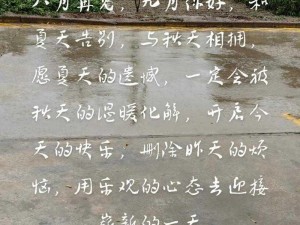 八月再见，九月你好，和
夏天告别，与秋天相拥，
愿夏天的遗憾，一定会被
秋天的温暖化解，开启今
天的快乐，删除昨天的烦
恼，用乐观的心态去迎接
崭新的一天